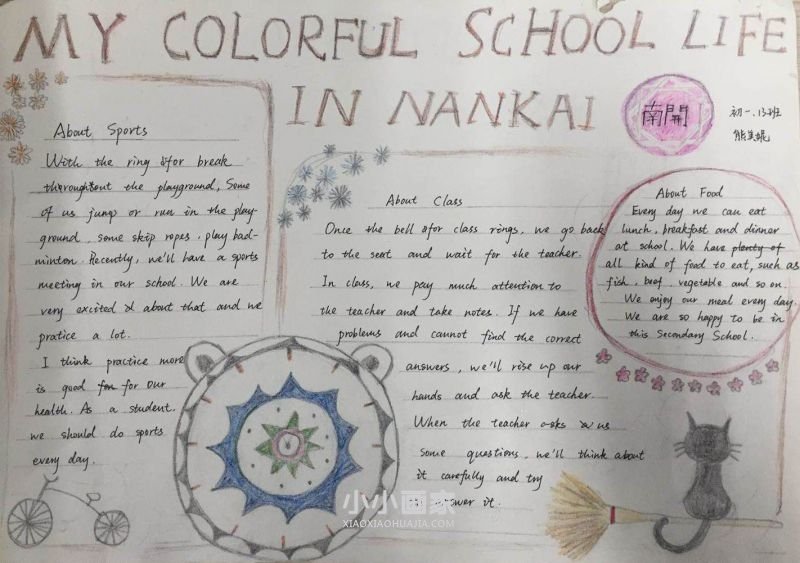 MY COLORFUL SCHOOL LIFE
IN NANKAI
南開
初一.13班
About Sports
With the ring for break
throughout the playground, Some
of us jump or run in the play-
ground, some skip ropes, play bad-
minton. Recently, we'll have a sports
meeting in our school. We are
very excited about that and we
pratice a lot.
I think practice more
is good for our
health. As a student.
we should do sports
every day.
About Class
Once the bell for class rings, we go back
to the seat and wait for the teacher.
In class, we pay much attention to
the teacher and take notes. If we have
problems and cannot find the correct
answers, we'll rise up our
hands and ask the teacher.
When the teacher asks us
some questions, we'll think about
it carefully and try
to answer it.
About Food
Every day we can eat
lunch, breakfast and dinner
at school. We have plenty of
all kind of food to eat, such as
fish, beef, vegetable and so on.
We enjoy our meal every day.
We are so happy to be in
this Secondary School.
小小画家
XIAOXIAOHUAJIA.COM